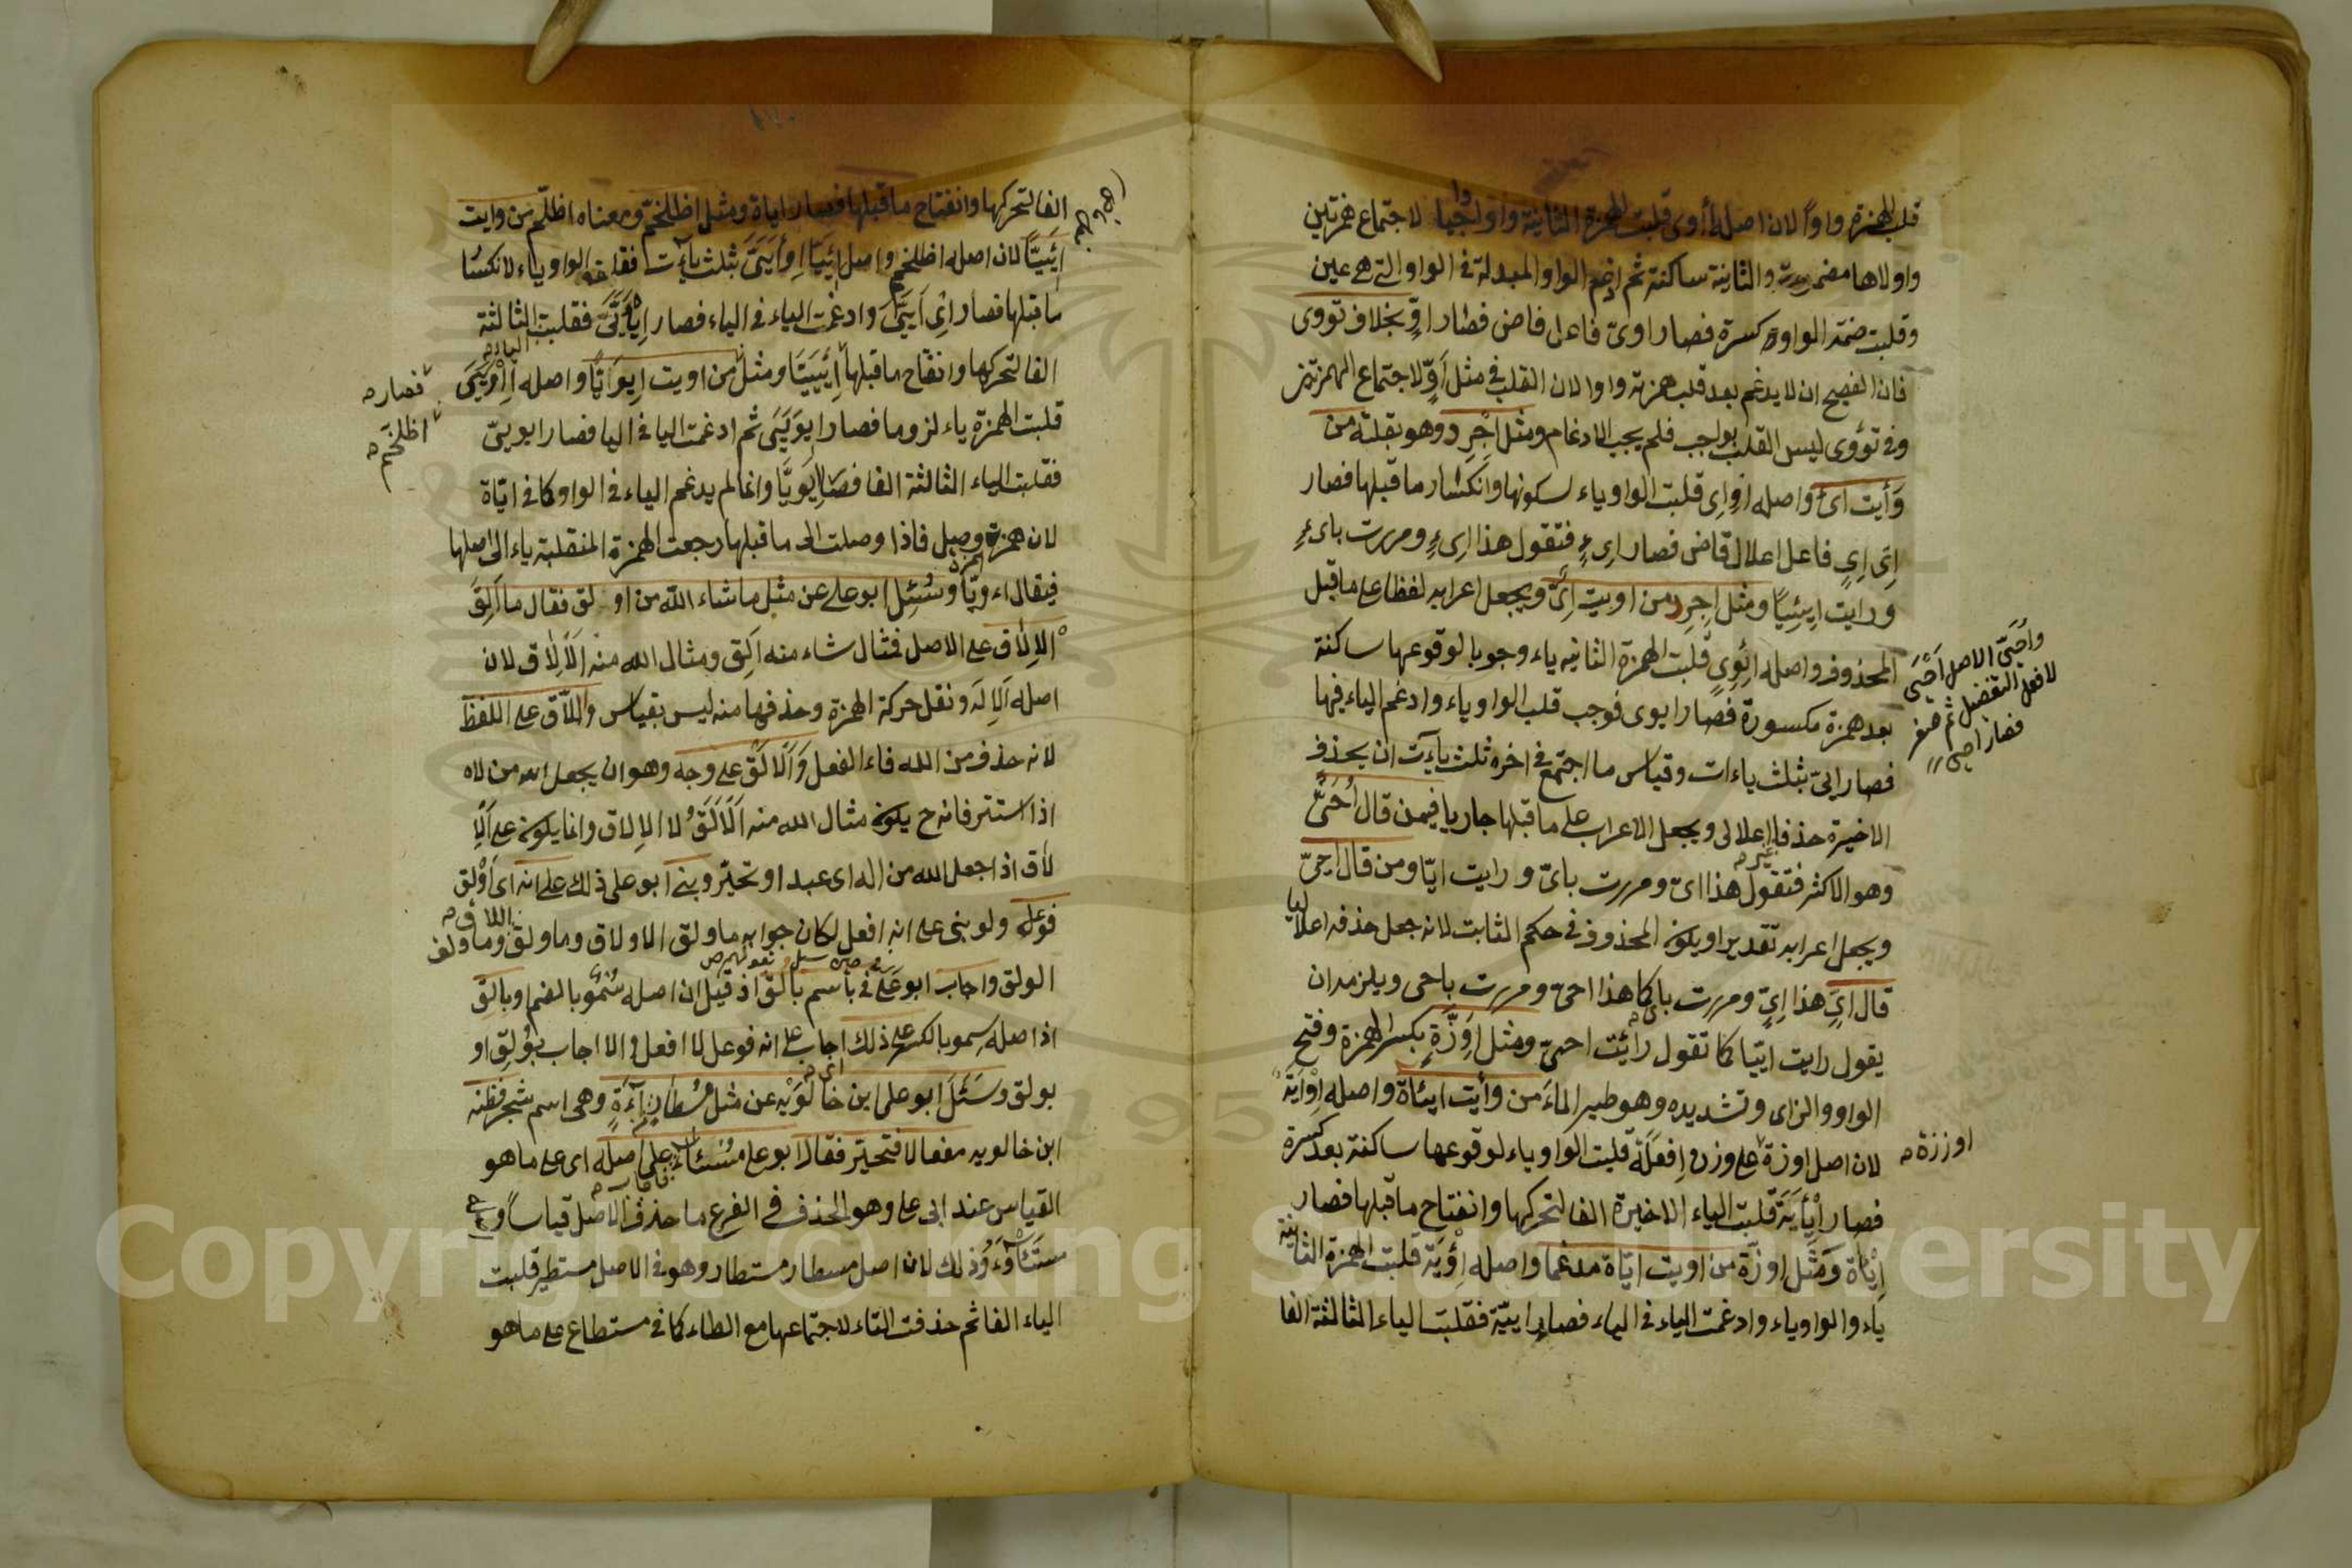 قلب الهمزة واوًا لان اصله أأوى قلبت الهمزة الثانية واوا واجبا لاجتماع همزتين
واولاها مضمومة والثانية ساكنة ثم ادغم الواو المبدلة فى الواو التى هى عين
وقلبت ضمة الواو كسرة فصار اوىّ فاعل فاض فصار اوٍّ بخلاف تووى
فان الفصيح ان لا يدغم بعد قلب همزته واوا لان القلب فى مثل أوٍّ لاجتماع الهمزتين
وفى تؤوى ليس القلب بواجب فلم يجب الادغام ومثل اجرد وهو بقلة من
وأيت اىء واصله اوإى قلبت الواو ياء لسكونها وانكسار ما قبلها فصار
اىإى فاعل اعلال قاض فصار اىءٍ فتقول هذا اىءٍ ومررت باىءٍ
ورايت ايئيا ومثل اجرد من اويت اىّ ويجعل اعرابه لفظا على ما قبل
المحذوف واصله ائوى قلبت الهمزة الثانيه ياء وجوبا لوقوعها ساكنة
بعد همزة مكسورة فصار ايوى فوجب قلب الواو ياء وادغم الياء فيها
فصار ايىّ بثلث ياءات وقياس ما اجتمع فى اخره ثلث ياءت ان يحذف
الاخيرة حذفا اعلالى ويجعل الاعراب على ما قبلها جاريا فيمن قال أُحَىّ
وهو الاكثر فتقول هذا اىّ ومررت باىّ ورايت ايّا ومن قال احىّ
ويجعل اعرابه تقديرا ويكون المحذوف فى حكم الثابت لانه جعل حذفه اعلاليا
قال اىٍّ هذا اىٍّ ومررت باىّ كما هذا احىّ ومررت باحى ويلزمه ان
يقول رايت اييا كما تقول رائت احيى ومثل اوزّة بكسر الهمزة وفتح
الواو والزاى وتشديده وهو طير الماء من وأيت ايئاة واصله اوأية
لان اصل اوزة على وزن إفعلة قلبت الواو ياء لوقوعها ساكنة بعد كسرة
فصار ايأية قلبت الياء الاخيرة الفا لتحركها وانفتاح ما قبلها فصار
ايئاة ومثل اوزّة من اويت ايّاة مدغما واصله إئوية قلبت الهمزة الثانية
ياء والواو ياء وادغمت الياء فى الياء فصار اييّة فقلبت الياء الثالثة الفا
واحىّ الاصل احيى
لافعل التفضيل ثم صغر
فصار احيى
اوززة
الفا لتحركها وانفتاح ما قبلها فصار اياة ومثل اظلخمّ ومعناه اظلم من وايت
ايئيّا لان اصله اظلخمم واصل ايئيا اوأييَىَ بثلث ياءت فقلبت الواو ياء لانكسار
ما قبلها فصار اىأيَىَ وادغمت الياء فى الياء فصار ايأيَّىَ فقلبت الثالثة
الفا لتحركها وانفتاح ما قبلها ايئييا ومثل من اويت ايويّا واصله إئويَىَ
قلبت الهمزة ياء لزوما فصار ايويَيَى ثم ادغمت اليا فى اليا فصار ايويىّ
فقلبت الياء الثالثة الفا فصار ايويّا وانما لم يدغم الياء فى الواو كما فى ايّاة
لان همزة وصل فاذا وصلت الى ما قبلها رجعت الهمزة المنقلبة ياء الى اصلها
فيقال اء ويّا وسئل ابو على عن مثل ما شاء الله من اولق فقال ما الق
الالاق على الاصل فمثال شاء منه الق ومثال الله منه الالاق لان
اصله الاله ونقل حركة الهمزة وحذفها منه ليس بقياس واللاق على اللفظ
لانه حذف من الله فاء الفعل والالق على وجه وهو ان يجعل الله من لاه
اذا استتر فانه ح يكون مثال الله منه الالق لا الالاق وانما يكون على الا
لاق اذا جعل الله من اله اى عبد او تحيّر وبنى ابو على ذلك على انه اى اولق
فوعل ولو بنى على انه افعل لكان جوابه ما ولق الاولاق وما ولق وما ولق
الولق واجاب ابو على فى باسم بالق اذ قيل ان اصله سُمْو بالضم او بالق
اذ اصله سِمو بالكسر على ذلك اجاب على انه فوعل لا افعل والا اجاب بوُلق او
بولق وسئل ابو على ابن خالويه عن مثل مسطار من آءة وهى اسم شجر فظنه
ابن خالويه مفعالا فتحير فقال ابو على مسئاء على اصله اى على ما هو
القياس عند ابى على وهو الحذف فى الفرع ما حذف فى الاصل قياسا و
مستئاوء وذلك لان اصل مسطار مستطار وهو فى الاصل مستطير قلبت
الياء الفا ثم حذفت التاء لاجتماعها مع الطاء كما فى مستطاع على ما هو
فصار
اظلخم